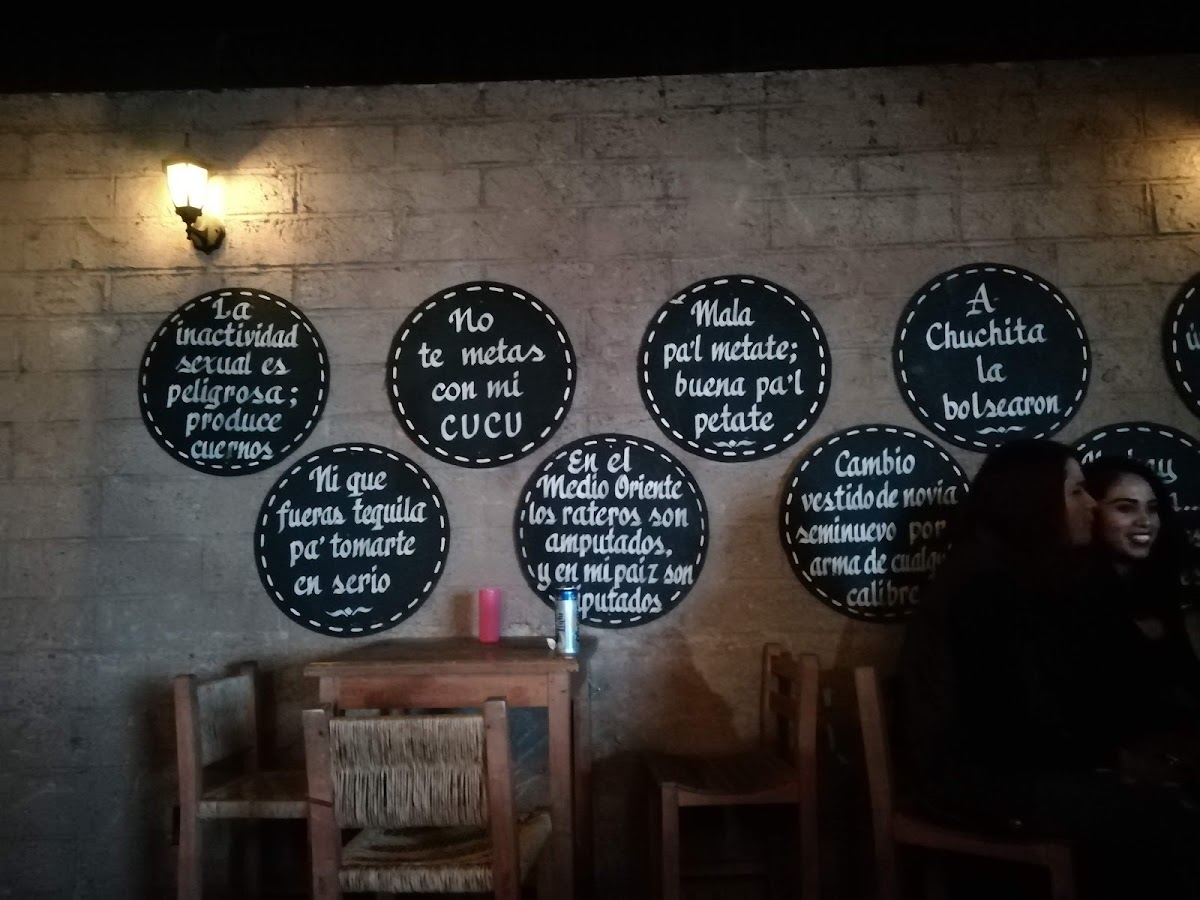 La
inactividad
sexual es
peligrosa;
produce
cuernos
No
te metas
con mi
CUCU
Mala
pa'l metate;
buena pa'l
petate
A
Chuchita
la
bolsearon
Ni que
fueras tequila
pa' tomarte
en serio
En el
Medio Oriente
los rateros son
amputados,
y en mi paiz son
Cambio
vestido de novia
seminuevo por
arma de
calibre